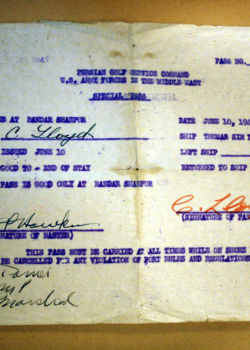 PASS NO.
PERSIAN GULF SERVICE COMMAND
U.S. ARMY FORCES IN THE MIDDLE EAST
SPECIAL PASS
AT BANDAR SHAHPUR
DATE JUNE 10, 19
C. Lloyd
SHIP THOMAS SIM
ISSUED JUNE 10
LEFT SHIP
GOOD TO - END OF STAY
RETURNED TO SHIP
PASS IS GOOD ONLY AT BANDAR SHAHPUR
C. L
(SIGNATURE OF PA
NATURE OF MASTER)
THIS PASS MUST BE CARRIED AT ALL TIMES WHILE ON SHORE
BE CANCELLED FOR ANY VIOLATION OF PORT RULES AND REGULATIONS
MP
Marshal